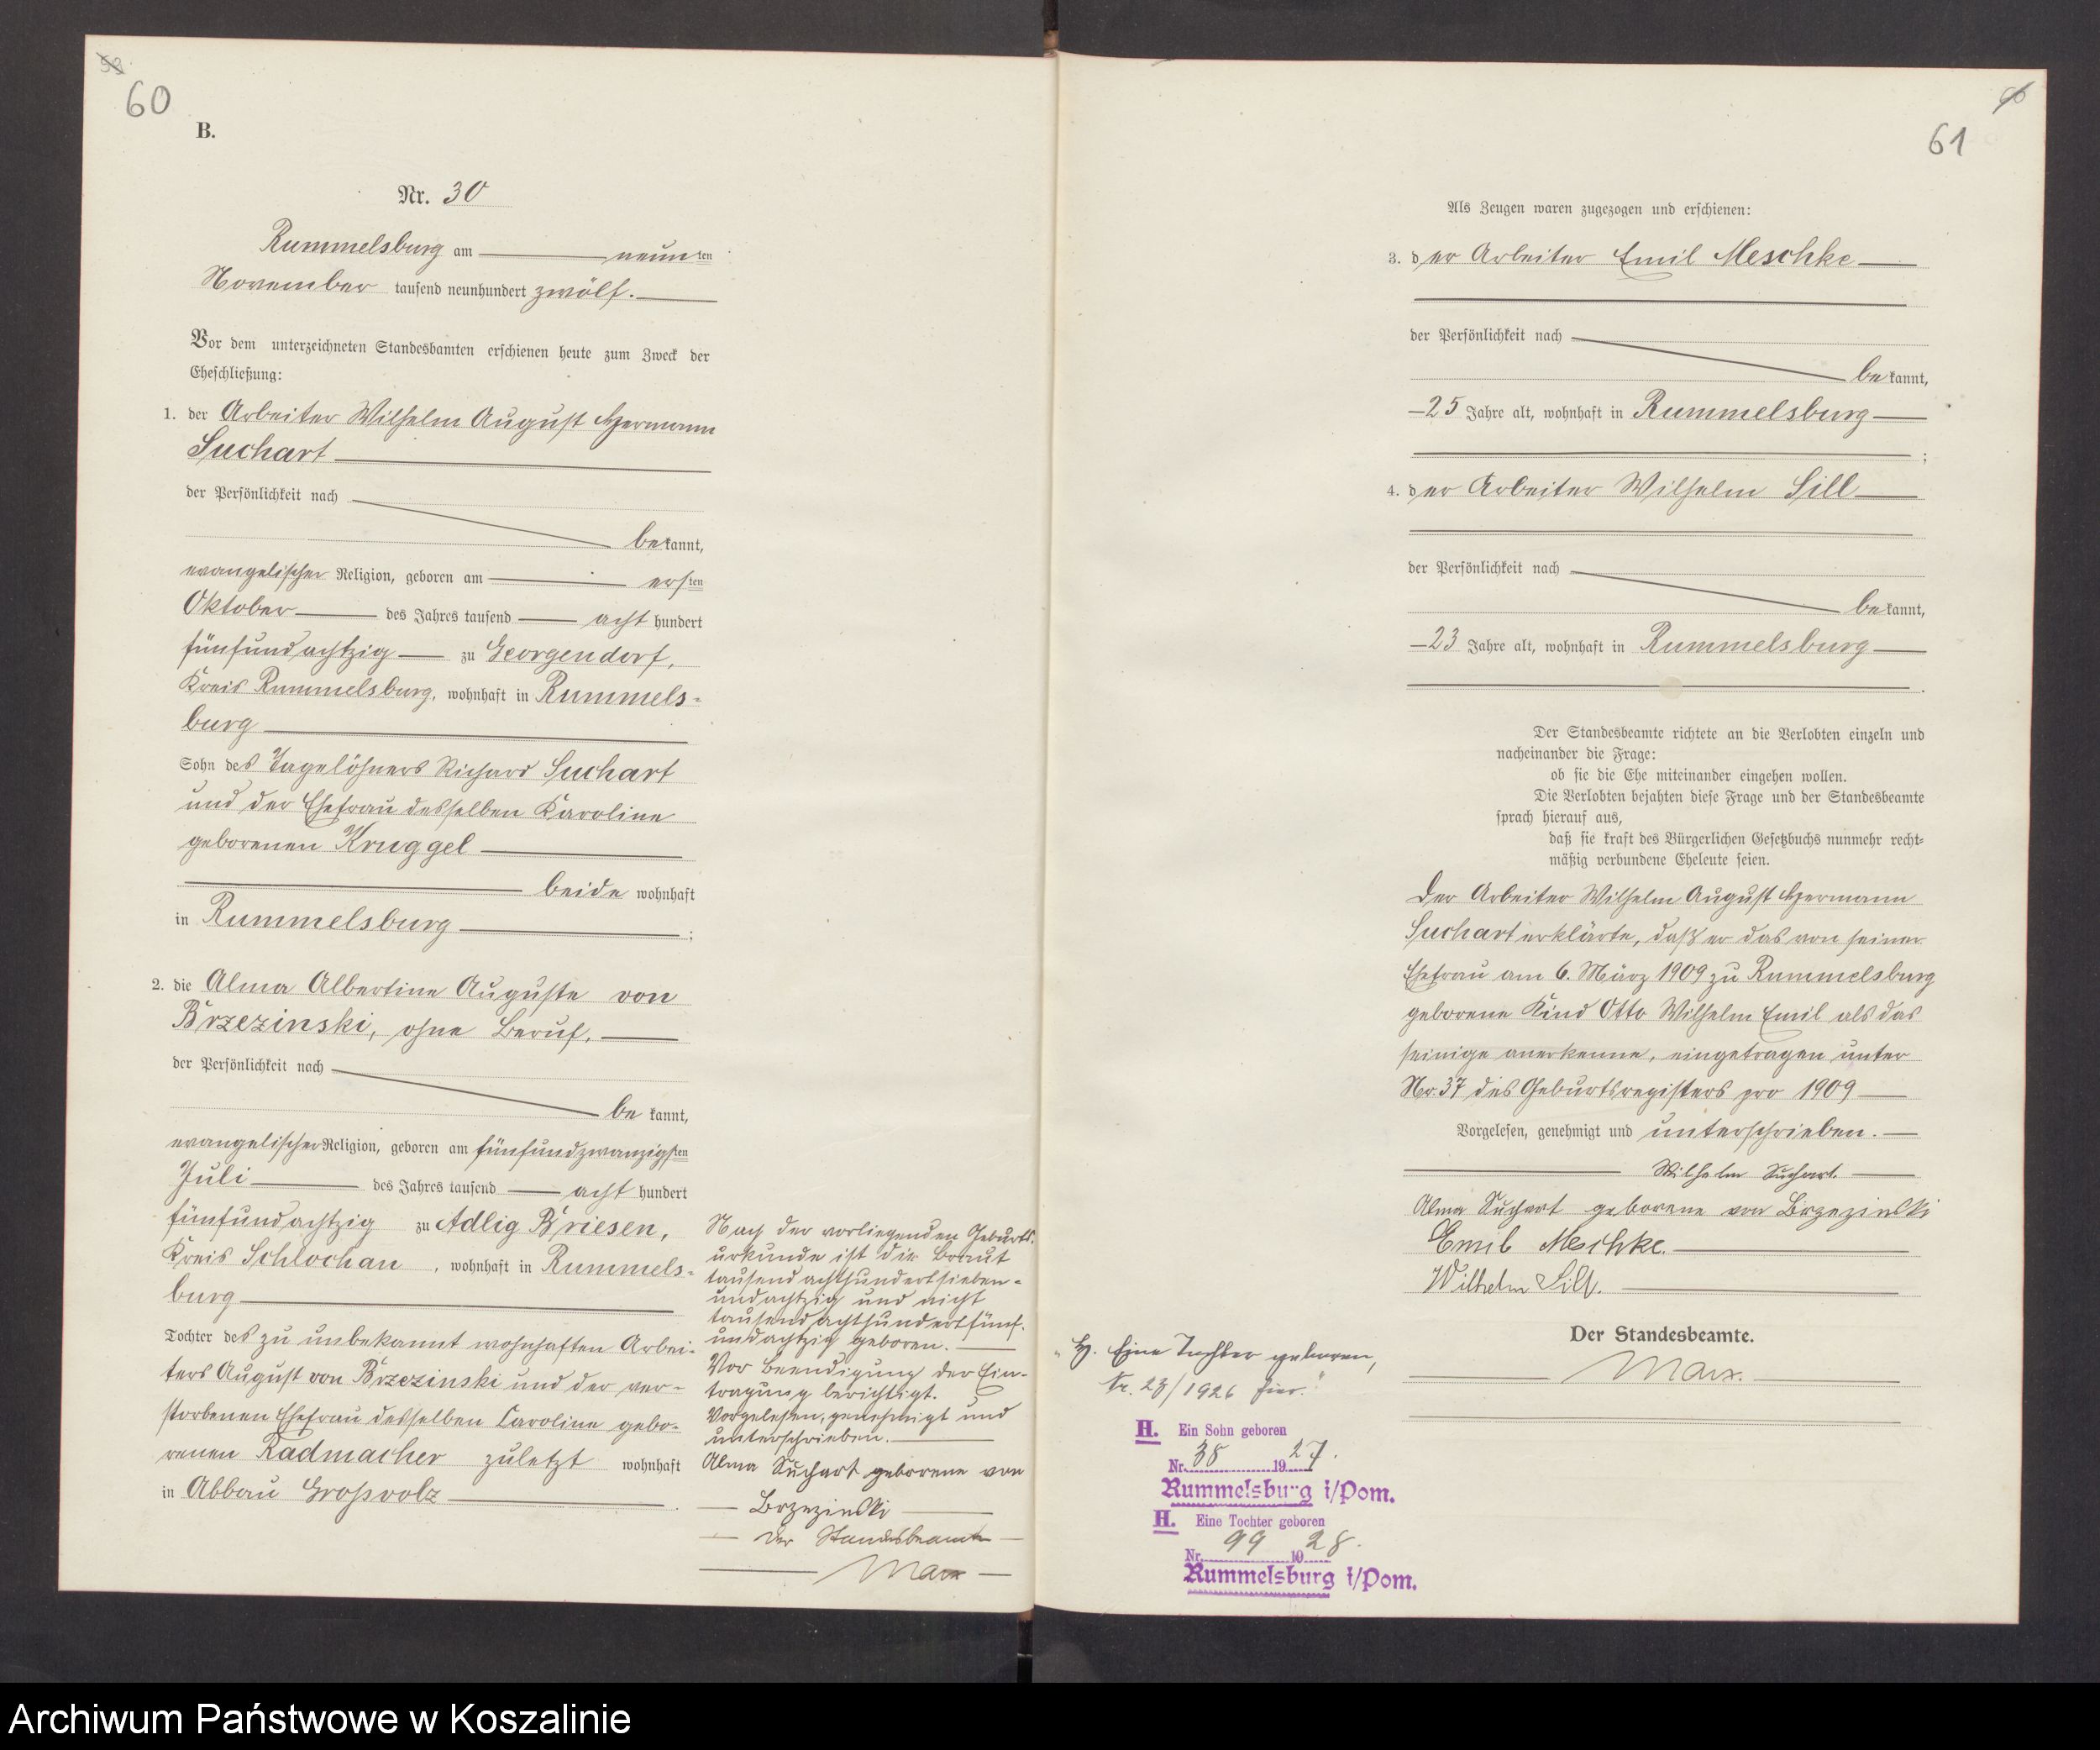 98
60
B.
Nr. 30
Rummelsburg am neunten
November tausend neunhundert zwölf.
Vor dem unterzeichneten Standesbamten erschienen heute zum Zweck der
Eheschließung:
1. der Arbeiter Wilhelm August Hermann
Suchart
der Persönlichkeit nach
bekannt,
evangelischer Religion, geboren am ersten
Oktober des Jahres tausend acht hundert
fünfundachtzig zu Georgendorf,
Kreis Rummelsburg, wohnhaft in Rummels-
burg
Sohn des Tagelöhners Richard Suchart
und der Ehefrau desselben Karoline
geborenen Kruggel
beide wohnhaft
in Rummelsburg ;
2. die Alma Albertine Auguste von
Brzezinski, ohne Beruf,
der Persönlichkeit nach
be kannt,
evangelischer Religion, geboren am fünfundzwanzigsten
Juli des Jahres tausend acht hundert
fünfundachtzig zu Adlig Briesen,
Kreis Schlochau, wohnhaft in Rummels-
burg
Tochter des zu unbekannt wohnhaften Arbei-
ters August von Brzezinski und der ver-
storbenen Ehefrau desselben Caroline gebo-
renen Radmacher zuletzt wohnhaft
in Abbau Großvolz .
Nach der vorliegenden Geburts-
urkunde ist die Braut
tausendachthundertsieben-
undachtzig und nicht
tausendachthundertfünf-
undachtzig geboren.
Vor Beendigung der Ein-
tragung berichtigt.
Vorgelesen, genehmigt und
unterschrieben.
Alma Suchart geborene von
Brzezinski
Der Standesbeamte
Marx
61
Als Zeugen waren zugezogen und erschienen:
3. der Arbeiter Emil Meschke
der Persönlichkeit nach
bekannt,
25 Jahre alt, wohnhaft in Rummelsburg
;
4. der Arbeiter Wilhelm Sill
der Persönlichkeit nach
bekannt,
23 Jahre alt, wohnhaft in Rummelsburg
.
Der Standesbeamte richtete an die Verlobten einzeln und
nacheinander die Frage:
ob sie die Ehe miteinander eingehen wollen.
Die Verlobten bejahten diese Frage und der Standesbeamte
sprach hierauf aus,
daß sie kraft des Bürgerlichen Gesetzbuchs nunmehr recht-
mäßig verbundene Eheleute seien.
Der Arbeiter Wilhelm August Hermann
Suchart erklärte, daß er das von seiner
Ehefrau am 6. März 1909 zu Rummelsburg
geborene Kind Otto Wilhelm Emil als das
seinige anerkenne, eingetragen unter
Nr. 37 des Geburtsregisters pro 1909
Vorgelesen, genehmigt und unterschrieben.
Wilhelm Suchart.
Alma Suchart geborene von Brzezinski
Emil Meschke.
Wilhelm Sill.
Der Standesbeamte.
Marx.
„H. Eine Tochter geboren,
Nr. 23/1926 hier."
H. Ein Sohn geboren
Nr. 38 1927.
Rummelsburg i/Pom.
H. Eine Tochter geboren
Nr. 99 1928.
Rummelsburg i/Pom.
Archiwum Państwowe w Koszalinie